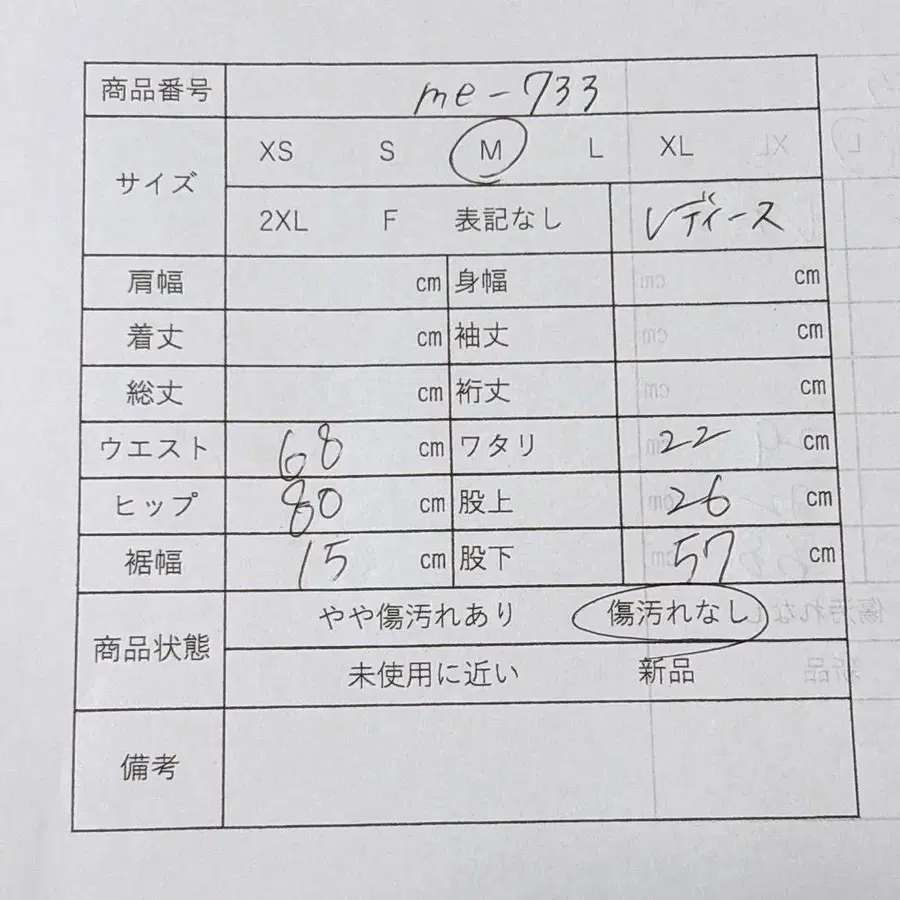 商品番号 me-733
サイズ XS S M L XL
2XL F 表記なし レディース
肩幅 cm 身幅 cm
着丈 cm 袖丈 cm
総丈 cm 裄丈 cm
ウエスト 68 cm ワタリ 22 cm
ヒップ 80 cm 股上 26 cm
裾幅 15 cm 股下 57 cm
商品状態 やや傷汚れあり 傷汚れなし
未使用に近い 新品
備考